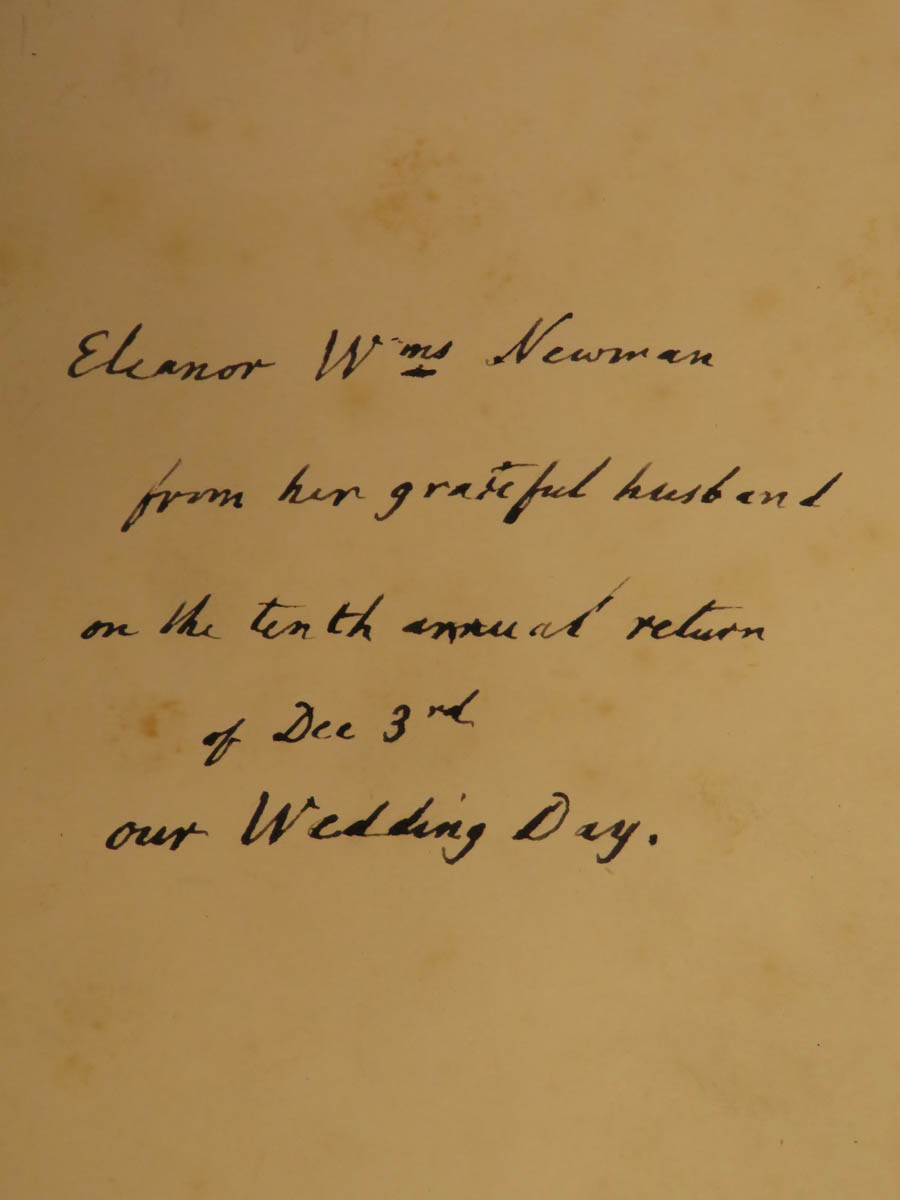 Eleanor Wms Newman
from her grateful husband
on the tenth annual return
of Dec 3rd
our Wedding Day.